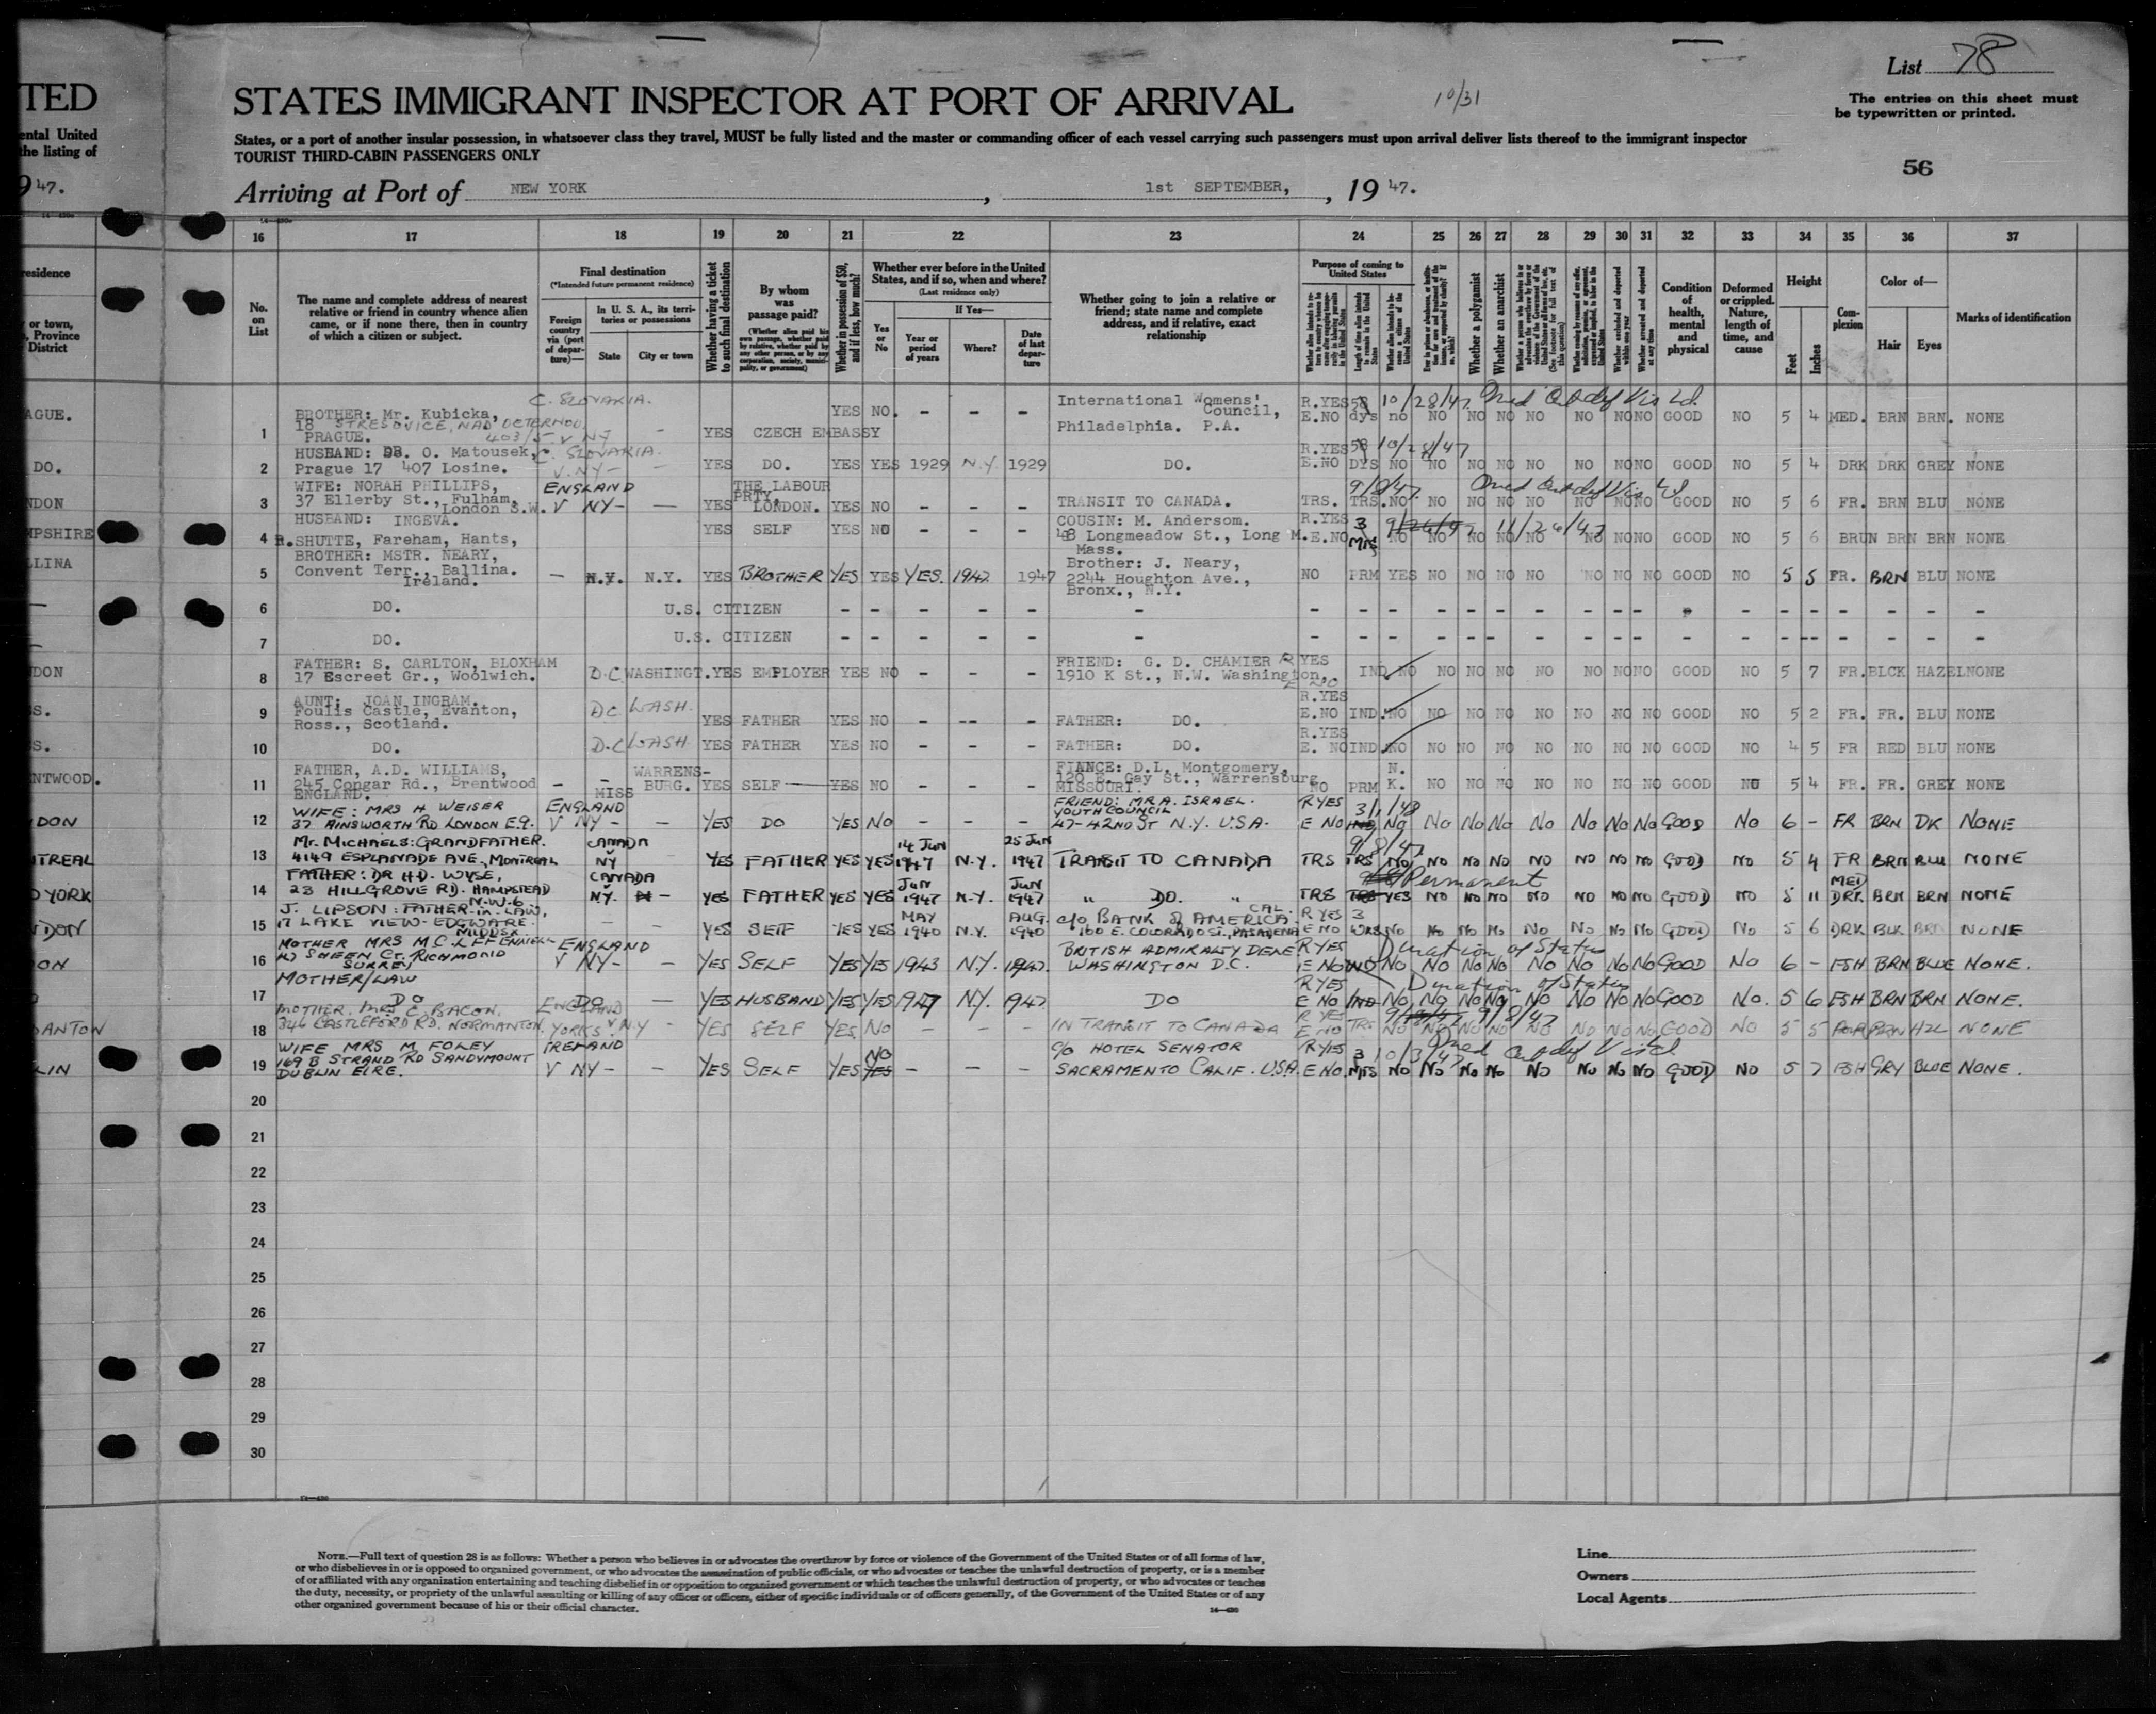 List 78
TED
STATES IMMIGRANT INSPECTOR AT PORT OF ARRIVAL
10/31
The entries on this sheet must
be typewritten or printed.
ental United
the listing of
States, or a port of another insular possession, in whatsoever class they travel, MUST be fully listed and the master or commanding officer of each vessel carrying such passengers must upon arrival deliver lists thereof to the immigrant inspector
TOURIST THIRD-CABIN PASSENGERS ONLY
56
9 47.
Arriving at Port of NEW YORK, 1st SEPTEMBER, 19 47.
16 17 18 19 20 21 22 23 24 25 26 27 28 29 30 31 32 33 34 35 36 37
residence
or town,
Province
District
No.
on
List
The name and complete address of nearest
relative or friend in country whence alien
came, or if none there, then in country
of which a citizen or subject.
Final destination
(*Intended future permanent residence)
Foreign
country
via (port
of depar-
ture)—
In U. S. A., its terri-
tories or possessions
State
City or town
Whether having a ticket
to such final destination
By whom
was
passage paid?
(Whether alien paid his
own passage, whether paid
by relative, whether paid by
any other person, or by any
corporation, society, munici-
pality, or government)
Whether in possession of $50,
and if less, how much?
Whether ever before in the United
States, and if so, when and where?
(Last residence only)
Yes
or
No
If Yes—
Year or
period
of years
Where?
Date
of last
depar-
ture
Whether going to join a relative or
friend; state name and complete
address, and if relative, exact
relationship
Purpose of coming to
United States
Length of time alien intends
to remain in the United
States
Whether a polygamist
Whether an anarchist
Condition
of
health,
mental
and
physical
Deformed
or crippled.
Nature,
length of
time, and
cause
Height
Feet
Inches
Com-
plexion
Color of—
Hair
Eyes
Marks of identification
AGUE.
C. SLOVAKIA.
BROTHER: Mr. Kubicka,
18 STRESOVICE, NAD
PRAGUE. 403/5 V NY -
1 YES CZECH EMBASSY YES NO. - - -
International Womens'
Council,
Philadelphia. P.A.
R.YES 58 10/28/47
E.NO dys no NO NO NO NO NO NO NO GOOD NO 5 4 MED. BRN BRN. NONE
DO.
HUSBAND: DR. O. Matousek, C. SLOVAKIA.
2 Prague 17 407 Losine. V. NY - - YES DO. YES YES 1929 N.Y. 1929 DO.
R.YES 58 10/28/47
E.NO DYS NO NO NO NO NO NO NO NO GOOD NO 5 4 DRK DRK GREY NONE
NDON
WIFE: NORAH PHILLIPS, ENGLAND
3 37 Ellerby St., Fulham,
London S.W. V NY - - YES THE LABOUR
PRTY,
LONDON. YES NO - - - TRANSIT TO CANADA.
9/8/47
TRS. TRS. NO NO NO NO NO NO NO NO GOOD NO 5 6 FR. BRN BLU NONE
MPSHIRE
HUSBAND: INGEVA.
4 R.SHUTTE, Fareham, Hants, YES SELF YES NO - - -
COUSIN: M. Andersom.
Longmeadow St., Long M.
Mass.
R.YES 3 11/26/47
E.NO MTS NO NO NO NO NO NO NO NO GOOD NO 5 6 BRUN BRN BRN NONE
LLINA
BROTHER: MSTR. NEARY,
5 Convent Terr., Ballina.
Ireland. - N.Y. N.Y. YES BROTHER YES YES YES. 1947. 1947
Brother: J. Neary,
2244 Houghton Ave.,
Bronx., N.Y.
NO PRM YES NO NO NO NO NO NO NO GOOD NO 5 5 FR. BRN BLU NONE
6 DO. U.S. CITIZEN - - - - - - - - - - - - - - - - - - - - - -
7 DO. U.S. CITIZEN - - - - - - - - - - - - - - - - - - - - - -
NDON
FATHER: S. CARLTON, BLOXHAM
8 17 Escreet Gr., Woolwich. D.C. WASHINGT. YES EMPLOYER YES NO - - -
FRIEND: G. D. CHAMIER
1910 K St., N.W. Washington,
R YES
E NO IND. NO NO NO NO NO NO NO NO GOOD NO 5 7 FR. BLCK HAZEL NONE
S.
AUNT: JOAN INGRAM.
9 Foulis Castle, Evanton,
Ross., Scotland. D.C. WASH. YES FATHER YES NO - -- - FATHER: DO.
R.YES
E.NO IND. NO NO NO NO NO NO NO NO GOOD NO 5 2 FR. FR. BLU NONE
S.
10 DO. D.C. WASH. YES FATHER YES NO - - - FATHER: DO.
R.YES
E. NO IND. NO NO NO NO NO NO NO NO GOOD NO 4 5 FR RED BLU NONE
ENTWOOD.
FATHER, A.D. WILLIAMS,
11 245 Congar Rd., Brentwood
ENGLAND. - - MISS WARRENS-
BURG. YES SELF YES NO - - -
FIANCE: D.L. Montgomery,
120 E. Gay St., Warrensburg
MISSOURI.
NO PRM N.
K. NO NO NO NO NO NO NO GOOD NO 5 4 FR. FR. GREY NONE
DON
WIFE: MRS H WEISER ENGLAND
12 37 AINSWORTH RD LONDON E.9. V NY - - YES DO YES NO - - -
FRIEND: MR A. ISRAEL.
YOUTH COUNCIL
47-42ND ST N.Y. U.S.A.
R YES 3/1/48
E NO IND NO NO NO NO NO NO NO NO GOOD NO 6 - FR BRN DK NONE
NTREAL
MR. MICHAELS: GRANDFATHER. CANADA
13 4149 ESPLANADE AVE., MONTREAL V NY YES FATHER YES YES 14 JUN
1947 N.Y. 25 JUN
1947 TRANSIT TO CANADA
9/8/47
TRS TRS NO NO NO NO NO NO NO NO GOOD NO 5 4 FR BRN BLU NONE
YORK
FATHER: DR H.D. WYSE, CANADA
14 23 HILLGROVE RD. HAMPSTEAD
N.W.6. V NY. - YES FATHER YES YES JUN
1947 N.Y. JUN
1947 " DO. "
Permanent
TRS TRS YES NO NO NO NO NO NO NO GOOD NO 5 11 MED
DRK BRN BRN NONE
NDON
J. LIPSON: FATHER-in-LAW,
15 17 LAKE VIEW-EDGWARE.
MIDDSX - - YES SELF YES YES MAY
1940 N.Y. AUG.
1940 c/o BANK of AMERICA. CAL.
160 E. COLORADO ST., PASADENA
R YES 3
E NO WKS NO NO NO NO NO NO NO NO GOOD NO 5 6 DRK BLK BRN NONE
ON
MOTHER MRS M C ENGLAND
16 SHEEN CT. RICHMOND
SURREY V NY - - YES SELF YES YES 1943 N.Y. 1947.
BRITISH ADMIRALTY DELE
WASHINGTON D.C.
R YES Duration of Status
E NO IND NO NO NO NO NO NO NO NO GOOD NO 6 - FSH BRN BLUE NONE.
MOTHER/LAW
17 DO DO - YES HUSBAND YES YES 1947 N.Y. 1947 DO
R YES Duration of Status
E NO IND NO NO NO NO NO NO NO NO GOOD NO. 5 6 FSH BRN BRN NONE.
ANTON
MOTHER. MRS C. BACON. ENGLAND
18 346 CASTLEFORD RD. NORMANTON, YORKS. V N.Y - YES SELF YES. NO - - - IN TRANSIT TO CANADA
R YES 9/8/47
E NO TRS NO NO NO NO NO NO NO NO GOOD NO 5 5 FAIR BRN HZL NONE
LIN
WIFE MRS M FOLEY IRELAND
19 169 B STRAND RD SANDYMOUNT
DUBLIN EIRE. V NY - - YES SELF YES NO
YES - - -
C/O HOTEL SENATOR
SACRAMENTO CALIF. U.S.A.
R YES 3 10/3/47
E NO. MTS NO NO NO NO NO NO NO NO GOOD NO 5 7 FSH GRY BLUE NONE.
20
21
22
23
24
25
26
27
28
29
30
NOTE.—Full text of question 28 is as follows: Whether a person who believes in or advocates the overthrow by force or violence of the Government of the United States or of all forms of law,
or who disbelieves in or is opposed to organized government, or who advocates the assassination of public officials, or who advocates or teaches the unlawful destruction of property, or is a member
of or affiliated with any organization entertaining and teaching disbelief in or opposition to organized government or which teaches the unlawful destruction of property, or who advocates or teaches
the duty, necessity, or propriety of the unlawful assaulting or killing of any officer or officers, either of specific individuals or of officers generally, of the Government of the United States or of any
other organized government because of his or their official character.
Line
Owners
Local Agents